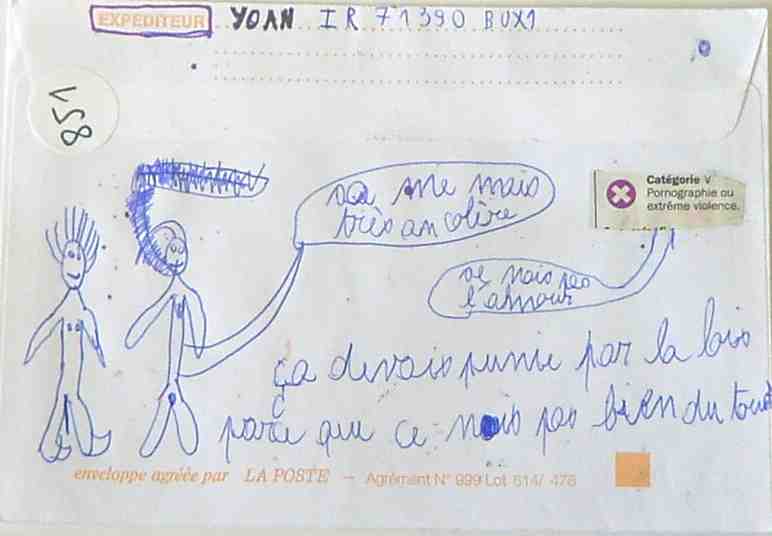 EXPÉDITEUR YOAN IR 71390 BUX1
158
ça me mais
très an colère
Catégorie V
Pornographie ou
extrême violence.
se nais pas
l'amour
ça devais punie par la lois
parce que ce nais pas bien du tout
enveloppe agréée par LA POSTE – Agrément N° 999 Lot 614/ 476